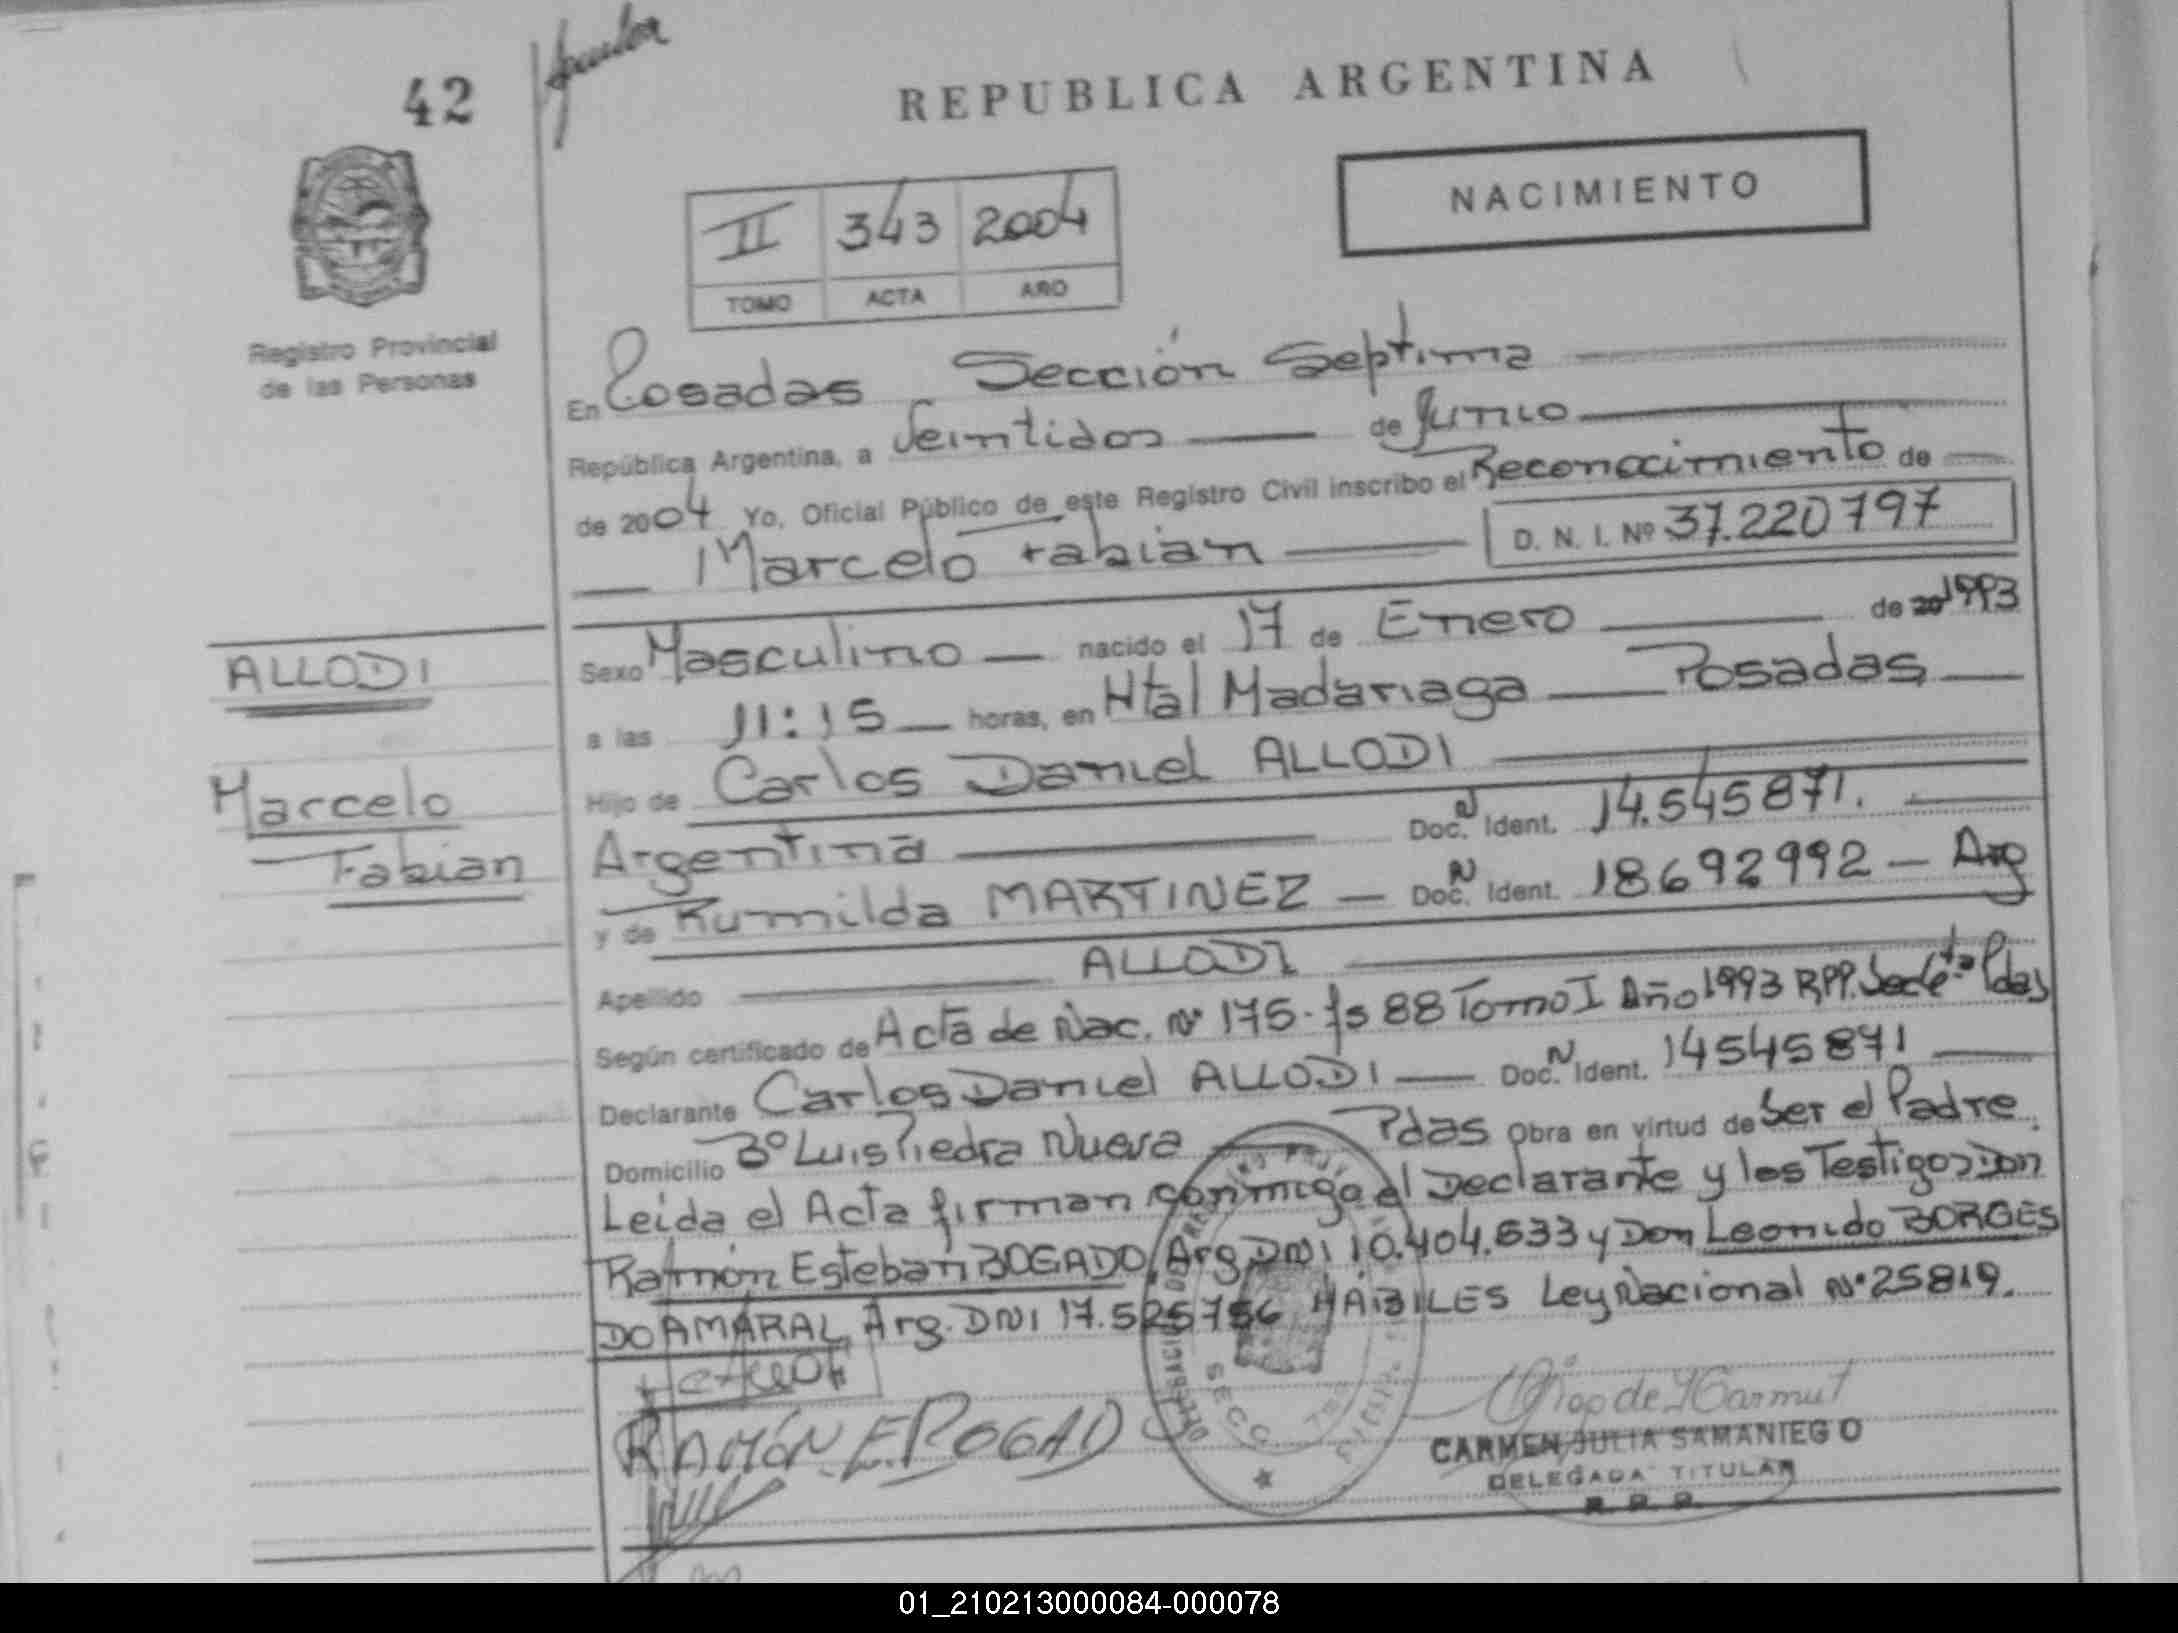 42
REPUBLICA ARGENTINA
NACIMIENTO
II 343 2004
TOMO ACTA AÑO
Registro Provincial
de las Personas
En Posadas Sección Septima
República Argentina, a Veintidos de Junio
de 2004 Yo, Oficial Público de este Registro Civil inscribo el Reconocimiento de
Marcelo Fabian D. N. I. Nº 37.220797
ALLODI
Marcelo
Fabian
Sexo Masculino nacido el 17 de Enero de 20 1993
a las 11:15 horas, en Htal Madariaga Posadas
Hijo de Carlos Daniel ALLODI
Argentina Doc. N Ident. 14.545871.
y de Rumilda MARTINEZ Doc. N Ident. 18692992 - Arg
Apellido ALLODI
Según certificado de Acta de Nac. Nº 175. fs 88 Tomo I Año 1993 R.P.P. Pdas
Declarante Carlos Daniel ALLODI Doc. N Ident. 14545871
Domicilio Bº Luis Piedra Nueva Pdas Obra en virtud de Ser el Padre.
Leida el Acta firman conmigo el Declarante y los Testigos Don
Ramón Esteban BOGADO, Arg. DNI 10.404.633 y Don Leonido BORGES
DO AMARAL Arg. DNI 17.525756 HÁBILES Ley Nacional Nº 25819.
RAMÓN. E. BOGADO
CARMEN JULIA SAMANIEGO
DELEGADA TITULAR
R. P. P.
01_210213000084-000078